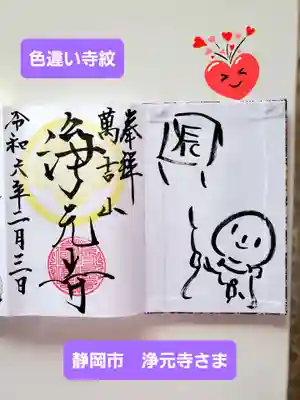 色違い寺紋
奉拝
萬吉山
浄元寺
令和六年二月三日
静岡市 浄元寺さま